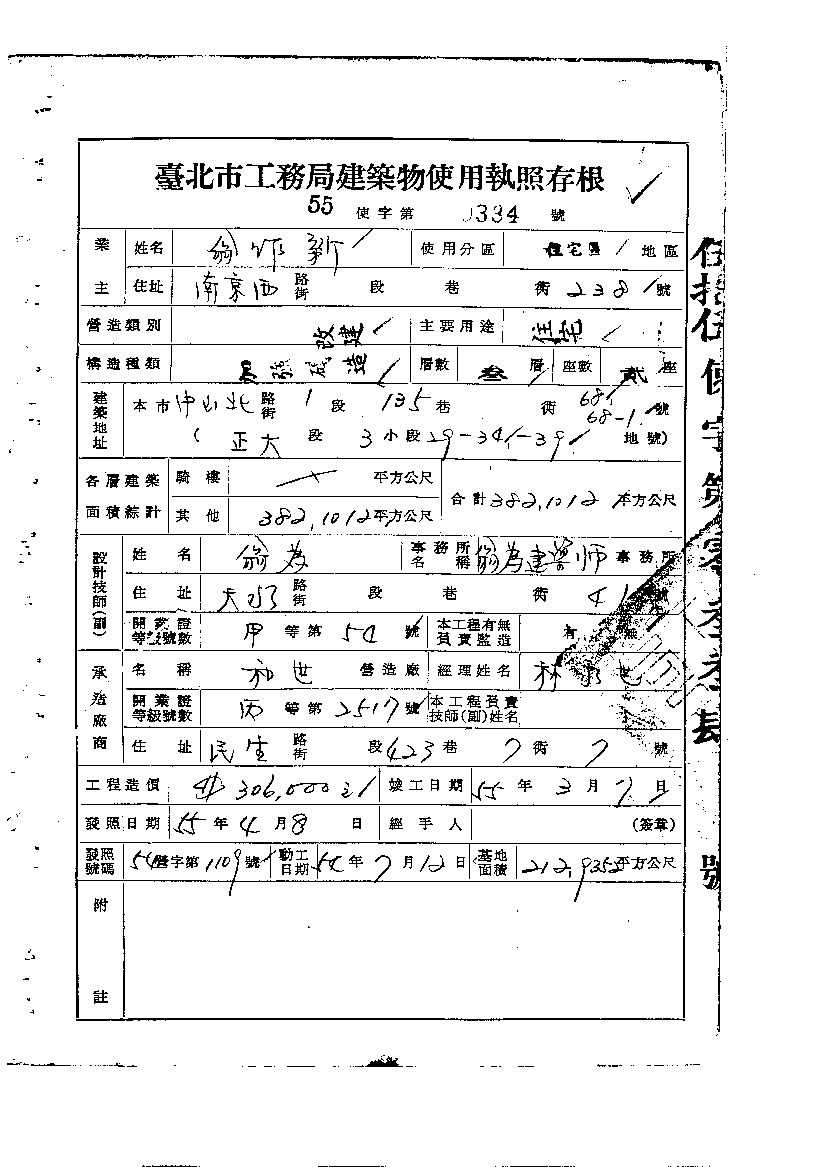 臺北市工務局建築物使用執照存根
55 使字第 0334 號
業主 姓名 翁作新 使用分區 住宅區 地區
住址 南京西 路街 段 巷 衖 238 號
營造類別 改建 主要用途 住宅
構造種類 加強磚造 層數 叁 層 座數 貳 座
建築地址 本市 中山北 路街 1 段 135 巷 衖 68 68-1 號
( 正大 段 3 小段 29-34-39 地號)
各層建築面積綜計 騎樓 平方公尺 合計 382,1012 平方公尺
其他 382,1012 平方公尺
設計技師(副) 姓名 翁為 事務所名稱 翁為建築師 事務所
住址 天水 路街 段 巷 衖 41 號
開業證等級號數 甲 等第 54 號 本工程有無負責監造 有 無
承造廠商 名稱 和世 營造廠 經理姓名 林
開業證等級號數 丙 等第 2517 號 本工程負責技師(副)姓名
住址 民生 路街 段 423 巷 7 衖 7 號
工程造價 306,000 竣工日期 55 年 3 月 7 日
發照日期 55 年 4 月 8 日 經手人 (簽章)
發照號碼 54 營字第 1109 號 動工日期 54 年 7 月 12 日 基地面積 212,9352 平方公尺
附註
伍拾伍使字第零叁叁肆號